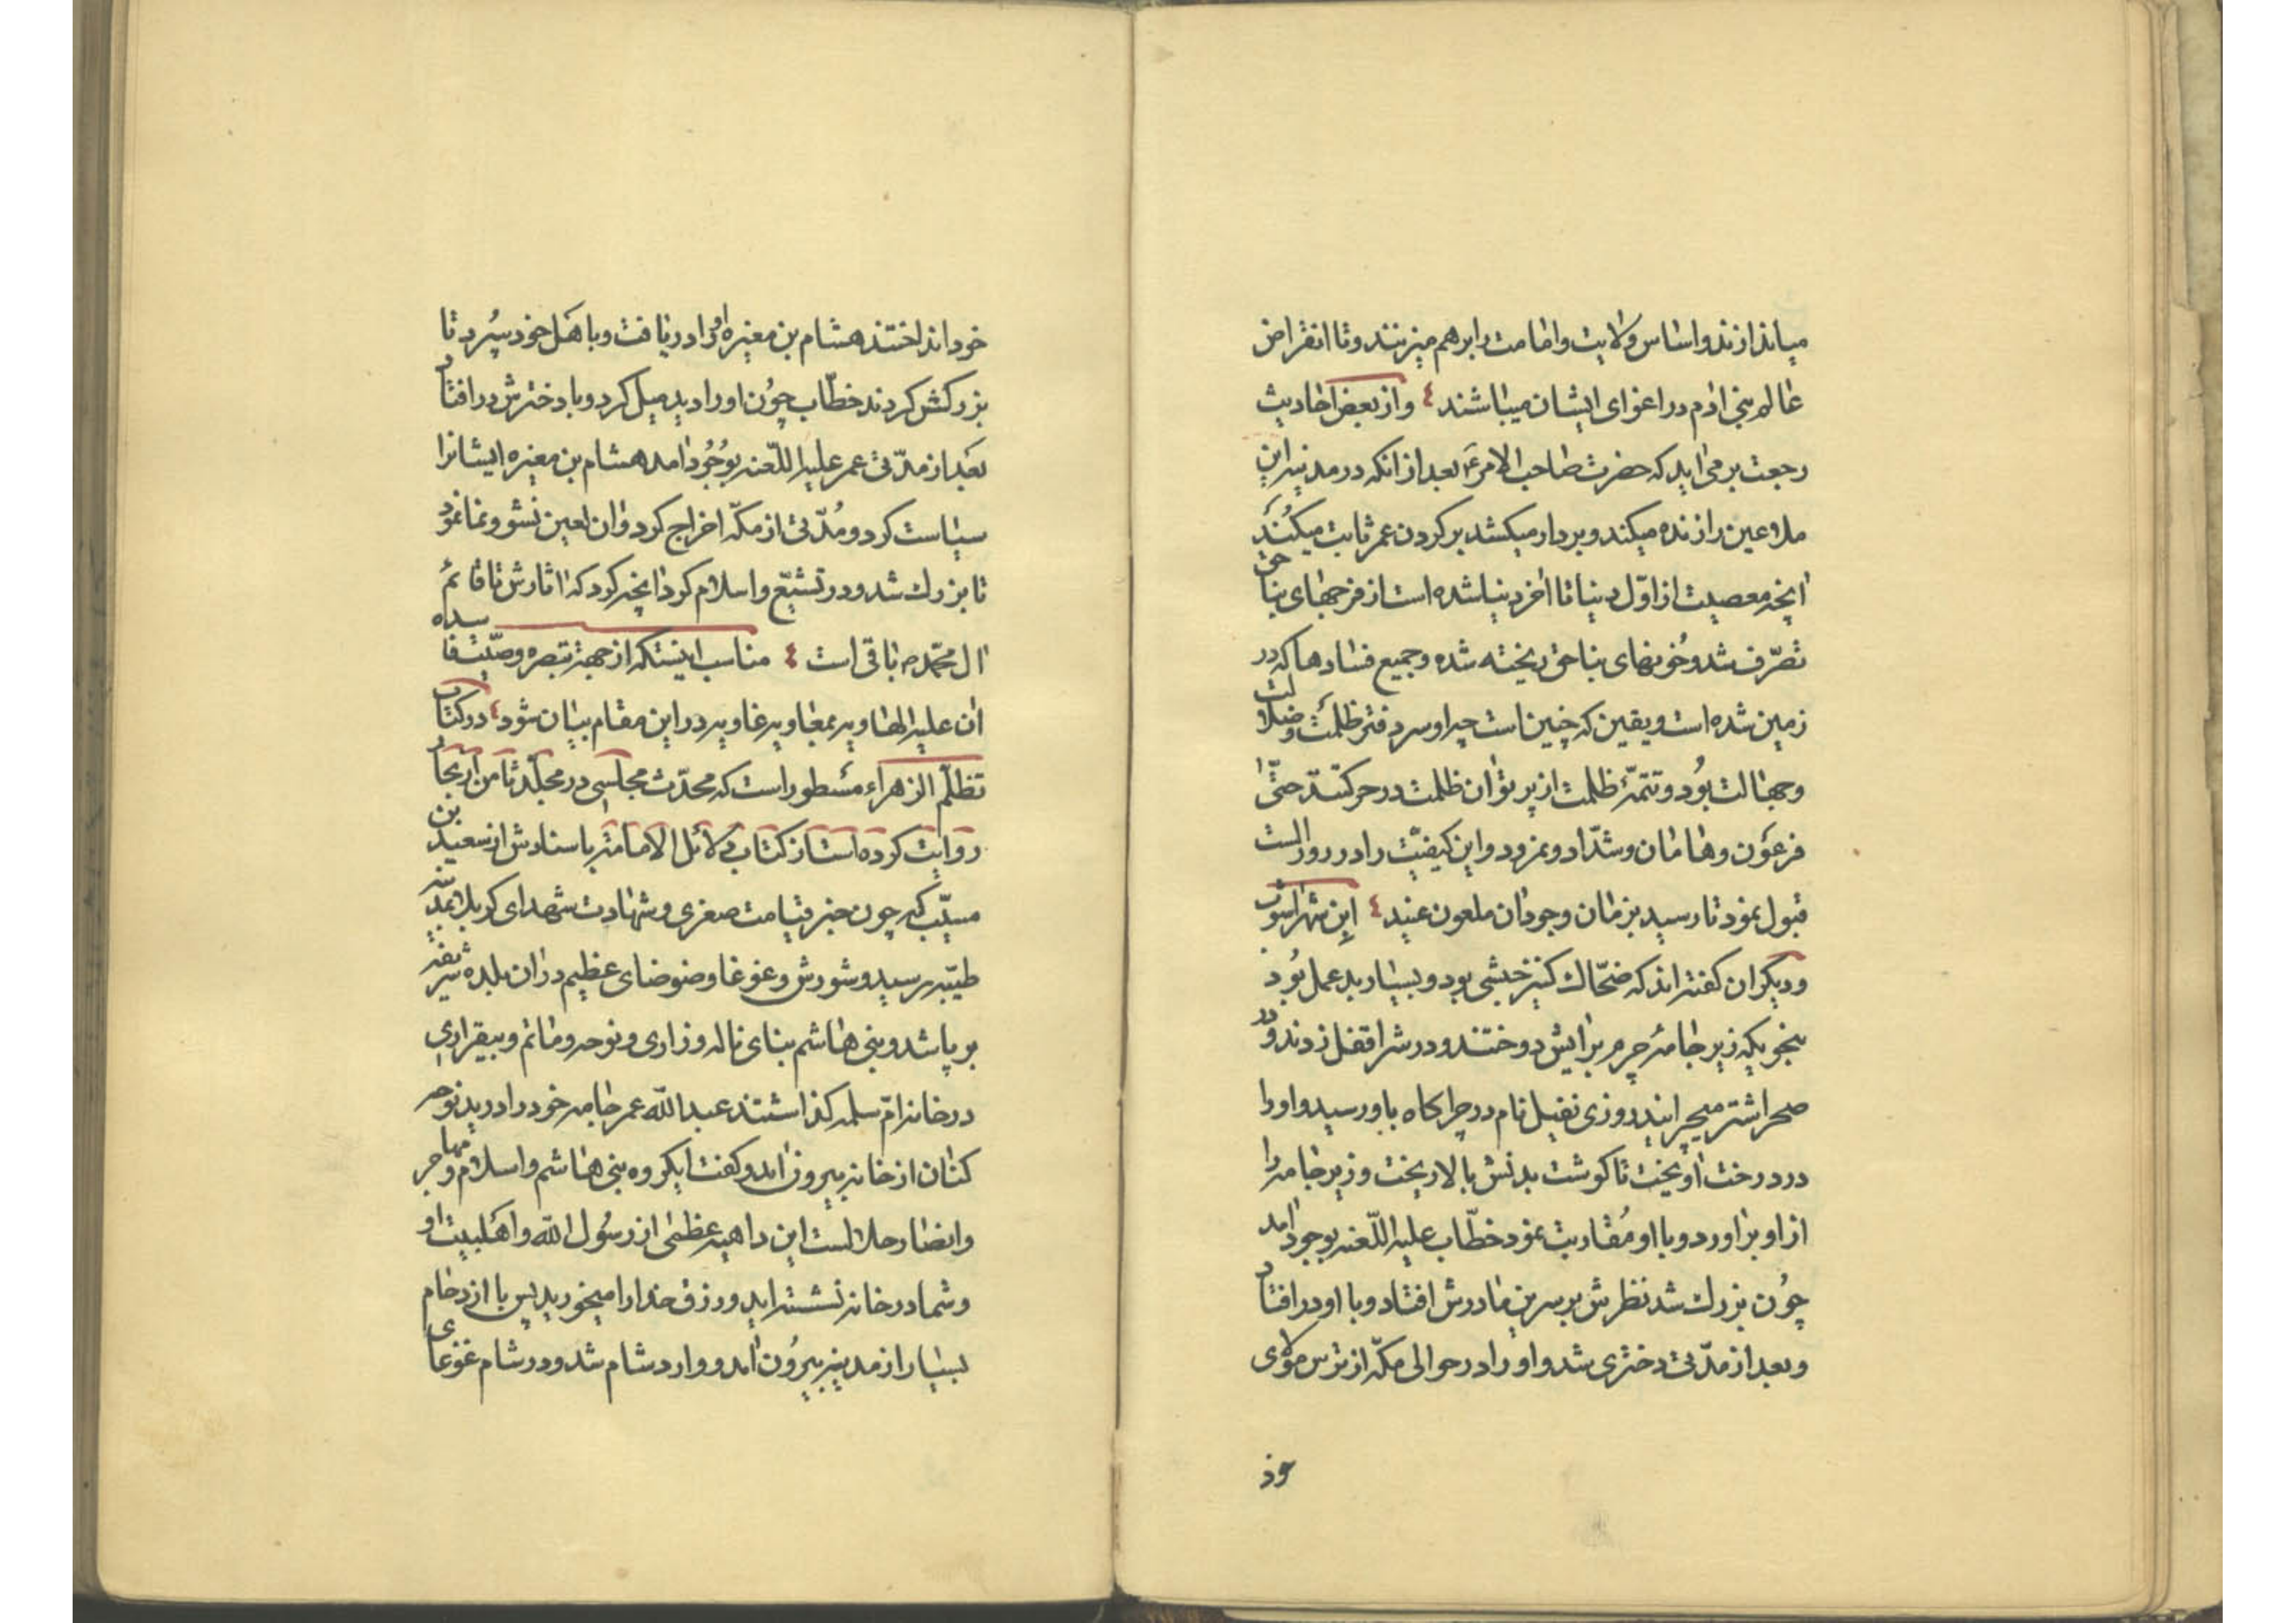 میاندازند و اساس ولایت و امامت را برهم میزنند و تا انقراض
عالم بنی ادم در اغوای ایشان میباشند ٤ و از بعض احادیث
رجعت بر می اید که حضرت صاحب الامر ع بعد از انکه در مدینه این
ملاعین را زنده میکند و بردار میکشد بر کردن عمر ثابت میکند
انچه معصیت از اول دنیا تا اخر دنیا شده است از فرجهای بناحق
تصرف شد و خونهای بناحق ریخته شده و جمیع فسادها که در
زمین شده است و یقین که چنین است چه او سر دفتر ظلمت و ضلالت
و جهالت بود و تتمهٔ ظلمت از پرتو ان ظلمت در حرکتند حتی
فرعون و هامان و شداد و نمرود و این کیفیت را در روز الست
قبول نمود تا رسید بزمان وجود ان ملعون عنید ٤ ابن شهراشوب
و دیکران کفته اند که ضحاک کنیز حبشی بود و بسیار بد عمل بود
بنحویکه زیر جامهٔ چرم برایش دوختند و در شراقفل زدند و در
صحرا شتر میچرانید روزی نفیل نام در چراکاه باو رسید و او را
در درخت اویخت تا کوشت بدنش بالا ریخت و زیر جامه را
از او براورد و با او مقاربت نمود خطاب علیه اللعنه بوجود امد
چون بزرک شد نظرش بر سرین مادرش افتاد و با او در افتاد
و بعد از مدتی دختری شد و او را در حوالی مکه از ترس مولای
خود انداختند هشام بن مغیره او را دریافت و با هل خود سپرد تا
بزرکش کردند خطاب چون او را دید میل کرد و با دخترش در افتاد
بعد از مدتی عمر علیه اللعنه بوجود امد هشام بن مغیره ایشانرا
سیاست کرد و مدتی از مکه اخراج کرد و ان لعین نشو و نما نمود
تا بزرک شد و در تشیع و اسلام کرد انچه کرد که اثارش تا قائم
ال محمد ص باقی است ٤ مناسب اینستکه از جهة تبصره
ان علیه الهاویه بمعاویه غاویه در این مقام بیان شود ٤ در کتاب
تظلم الزهراء مسطور است که محدث مجلسی در مجلد ثامن از بحار
روایت کرده است از کتاب دلائل الامامة باسنادش از سعید بن
مسیب که چون خبر قیامت صغری و شهادت شهدای کربلا بمدینه
طیبه رسید و شورش و غوغا و ضوضای عظیم در ان بلده شریفه
بر پا شد و بنی هاشم بنای ناله و زاری و نوحه و ماتم و بیقراری
در خانه ام سلمه کذاشتند عبدالله عمر جامه خود را درید نوحه
کنان از خانه بیرون امد و کفت ایکروه بنی هاشم و اسلام و مهاجر
و انصار حلالست این داهیه عظمی از رسول الله و اهلبیت او
و شما در خانه نشسته اید و رزق خدا را میخورید پس با ازدحام
بسیار از مدینه بیرون امد و وارد شام شد و در شام غوغای